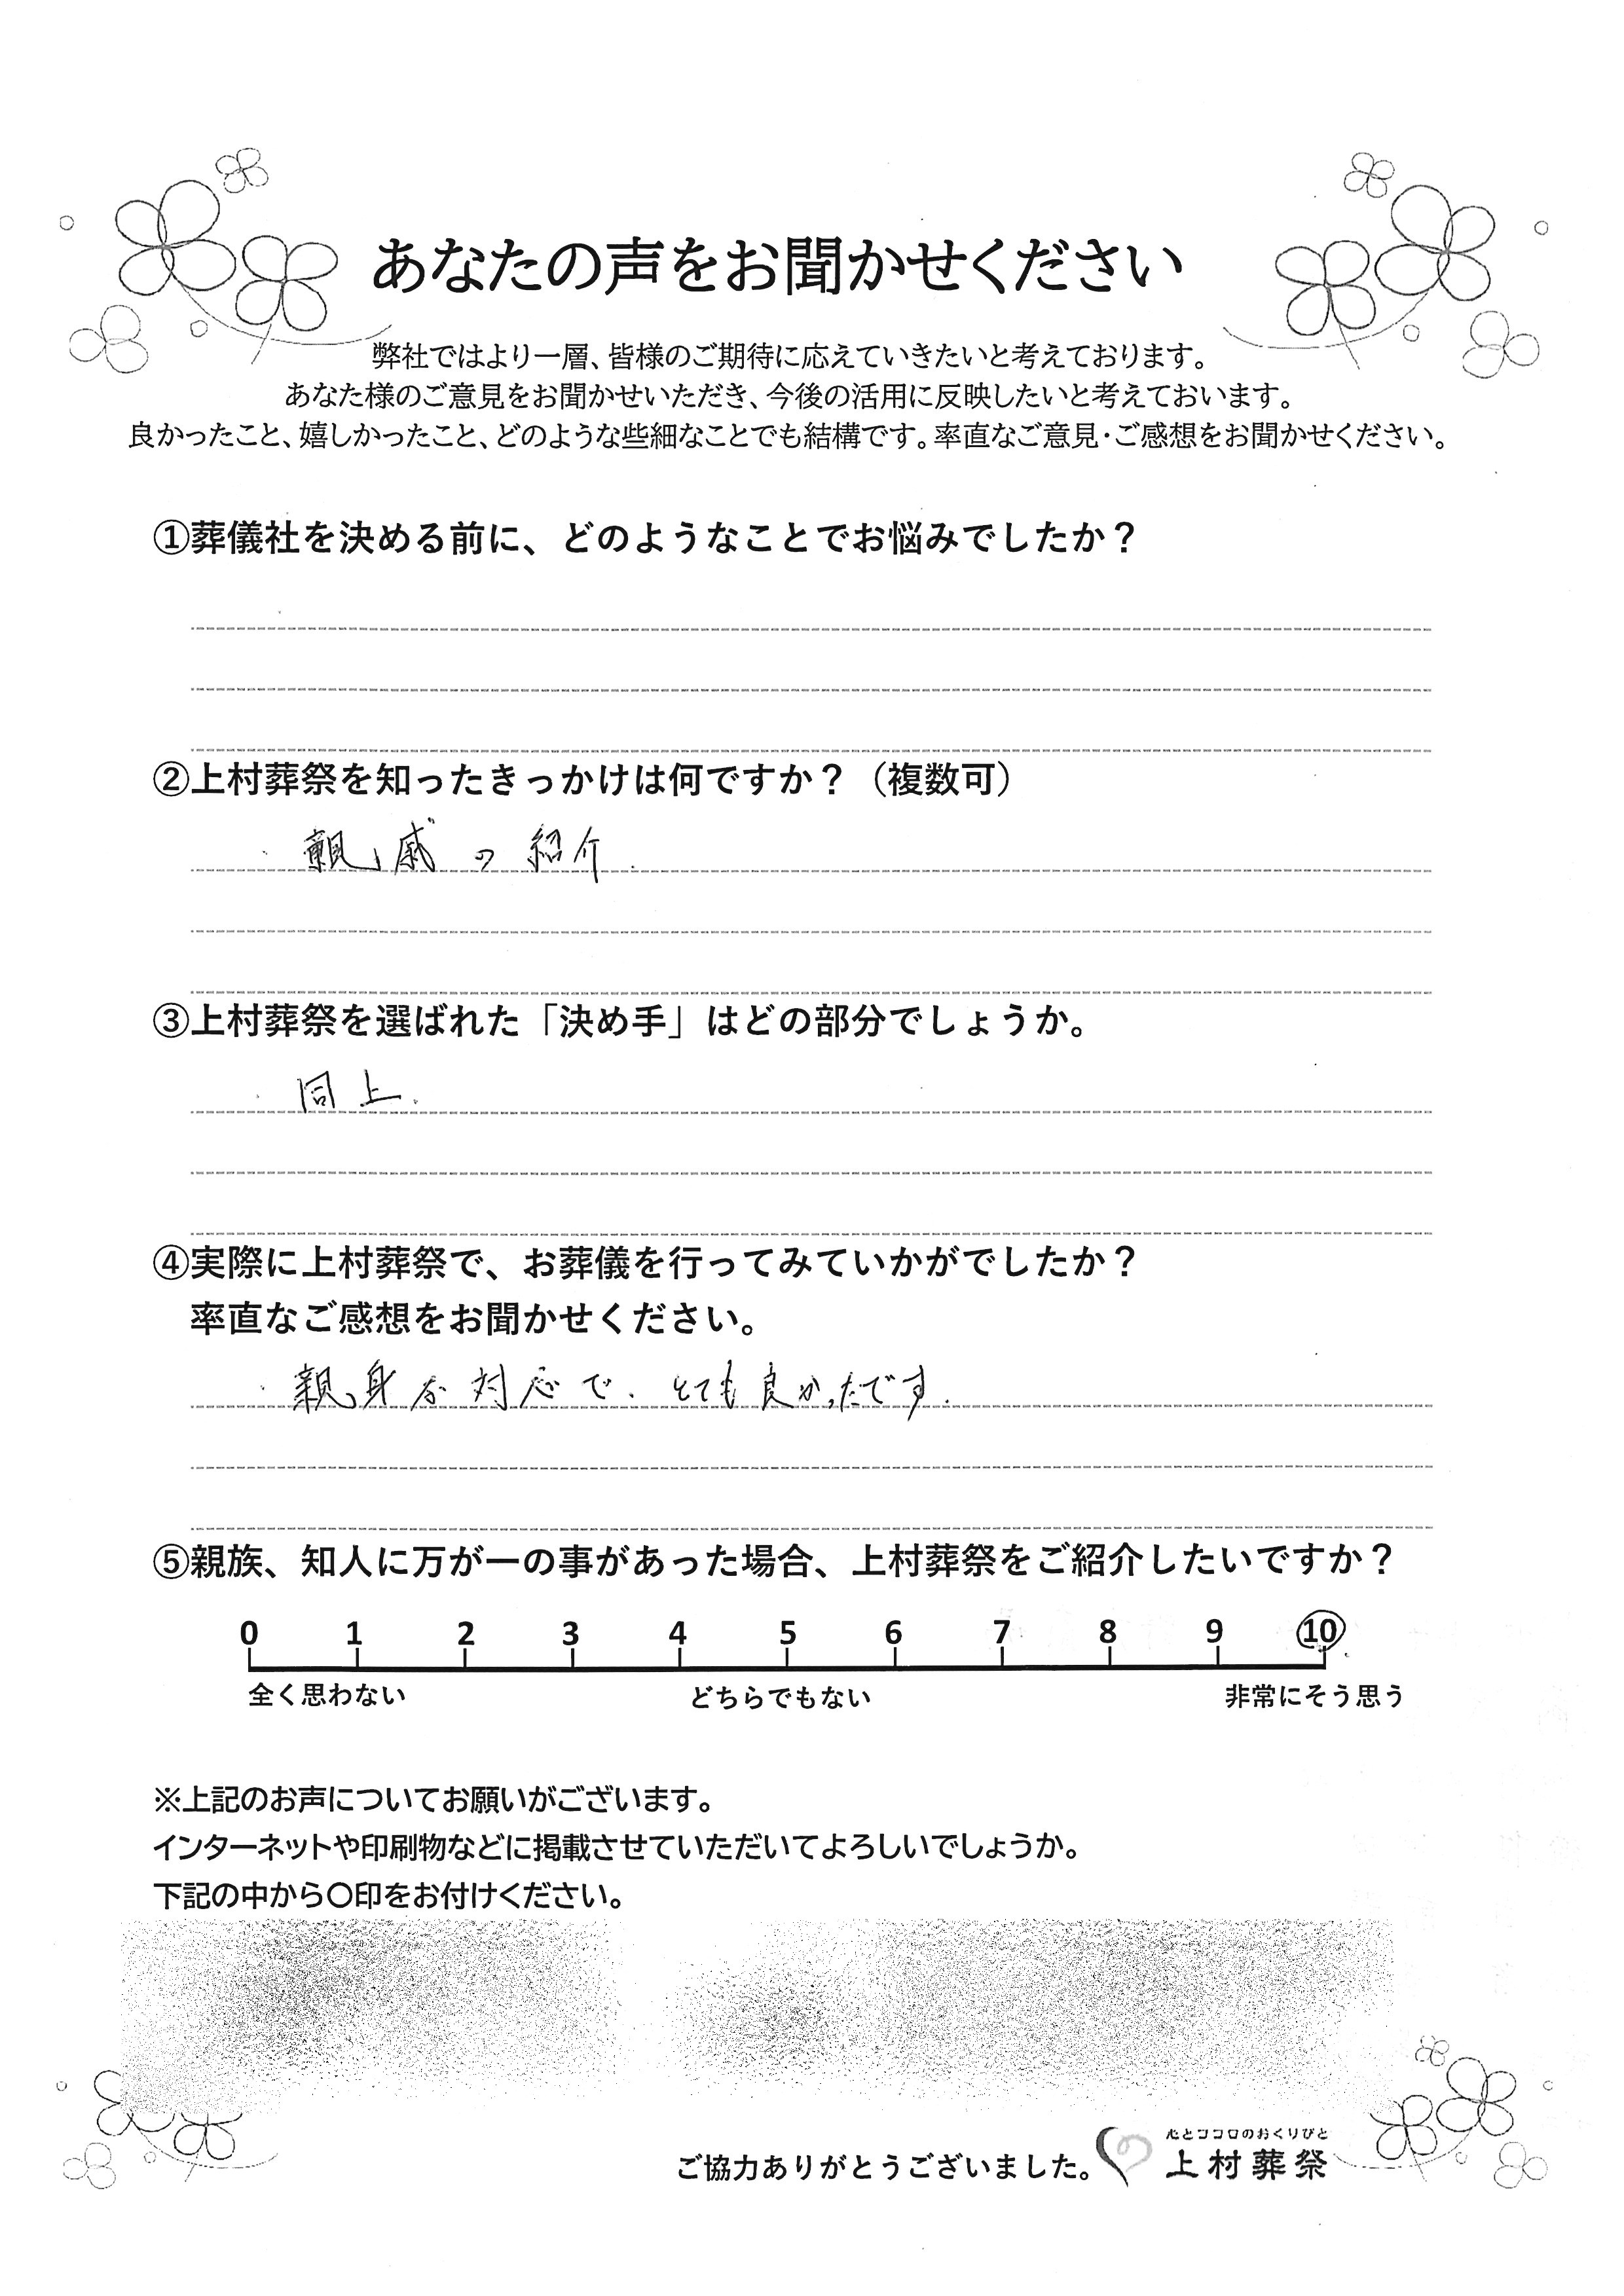 あなたの声をお聞かせください
弊社ではより一層、皆様のご期待に応えていきたいと考えております。
あなた様のご意見をお聞かせいただき、今後の活用に反映したいと考えておいます。
良かったこと、嬉しかったこと、どのような些細なことでも結構です。率直なご意見・ご感想をお聞かせください。
①葬儀社を決める前に、どのようなことでお悩みでしたか？
②上村葬祭を知ったきっかけは何ですか？（複数可）
・親戚の紹介.
③上村葬祭を選ばれた「決め手」はどの部分でしょうか。
・同上.
④実際に上村葬祭で、お葬儀を行ってみていかがでしたか？
率直なご感想をお聞かせください。
・親身な対応で、とても良かったです.
⑤親族、知人に万が一の事があった場合、上村葬祭をご紹介したいですか？
0 1 2 3 4 5 6 7 8 9 10
全く思わない どちらでもない 非常にそう思う
※上記のお声についてお願いがございます。
インターネットや印刷物などに掲載させていただいてよろしいでしょうか。
下記の中から〇印をお付けください。
心とココロのおくりびと
ご協力ありがとうございました。 上村葬祭